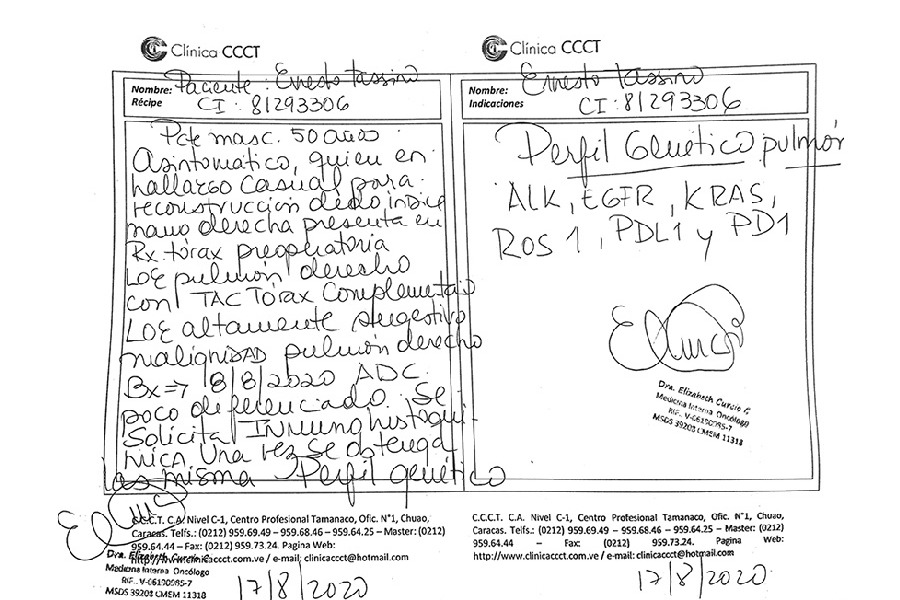 Clínica CCCT
Nombre: Paciente: Ernesto Tassini
Récipe CI: 81293306
Pcte masc. 50 años
Asintomático, quien en
hallazgo casual para
reconstrucción dedo índice
mano derecha presenta en
Rx tórax preoperatoria
LOE pulmón derecho
con TAC Tórax Complementario
LOE altamente sugestivo
malignidad pulmón derecho
Bx=> 18/8/2020 ADC
poco diferenciado. Se
Solicita Inmunohistoquí-
mica una vez se obtenga
las misma Perfil genético
C.C.C.T. C.A. Nivel C-1, Centro Profesional Tamanaco, Ofic. N°1, Chuao,
Caracas. Telfs.: (0212) 959.69.49 – 959.68.46 – 959.64.25 – Master: (0212)
959.64.44 – Fax: (0212) 959.73.24. Pagina Web:
http://www.clinicaccct.com.ve / e-mail: clinicaccct@hotmail.com
Dra. Elizabeth Curcio
Medicina Interna Oncólogo
RIF. V-06190985-7
MSDS 39203 CMEM 11318
17/8/2020
Clínica CCCT
Nombre: Ernesto Tassini
Indicaciones CI: 81293306
Perfil Genético pulmón
ALK, EGFR, KRAS,
ROS 1, PDL1 y PD1
Dra. Elizabeth Curcio G
Medicina Interna Oncólogo
RIF. V-06190985-7
MSDS 39203 CMEM 11318
C.C.C.T. C.A. Nivel C-1, Centro Profesional Tamanaco, Ofic. N°1, Chuao,
Caracas. Telfs.: (0212) 959.69.49 – 959.68.46 – 959.64.25 – Master: (0212)
959.64.44 – Fax: (0212) 959.73.24. Pagina Web:
http://www.clinicaccct.com.ve / e-mail: clinicaccct@hotmail.com
17/8/2020